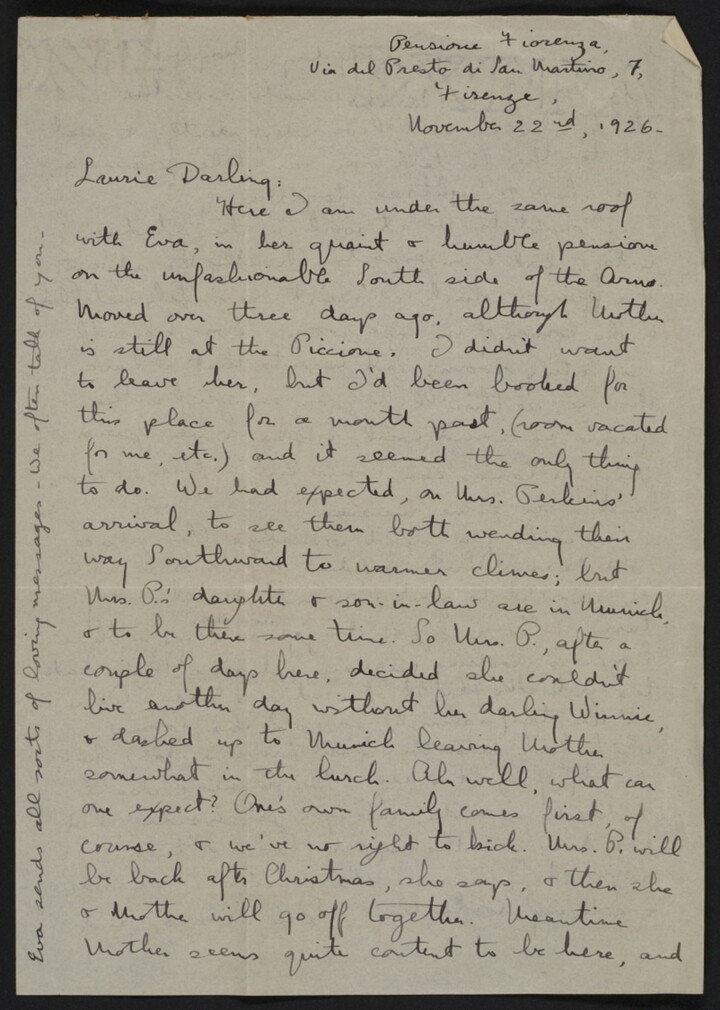 Pensione Fiorenza,
Via del Presto di San Martino, 7,
Firenze,
November 22nd, 1926-
Laurie Darling:
Here I am under the same roof
with Eva, in her quaint & humble pensione
on the unfashionable South side of the Arno.
Moved over three days ago, although Mother
is still at the Piccione. I didn't want
to leave her, but I'd been booked for
this place for a month past, (room vacated
for me, etc.) and it seemed the only thing
to do. We had expected, on Mrs. Perkins'
arrival, to see them both wending their
way Southward to warmer climes; but
Mrs. P.'s daughter & son-in-law are in Munich,
& to be there some time. So Mrs. P., after a
couple of days here, decided she couldn't
live another day without her darling Winnie,
& dashed up to Munich leaving Mother
somewhat in the lurch. Ah well, what can
one expect? One's own family comes first, of
course, & we've no right to kick. Mrs. P. will
be back after Christmas, she says, & then she
& Mother will go off together. Meantime
Mother seems quite content to be here, and
Eva sends all sorts of loving messages - We often talk of you -